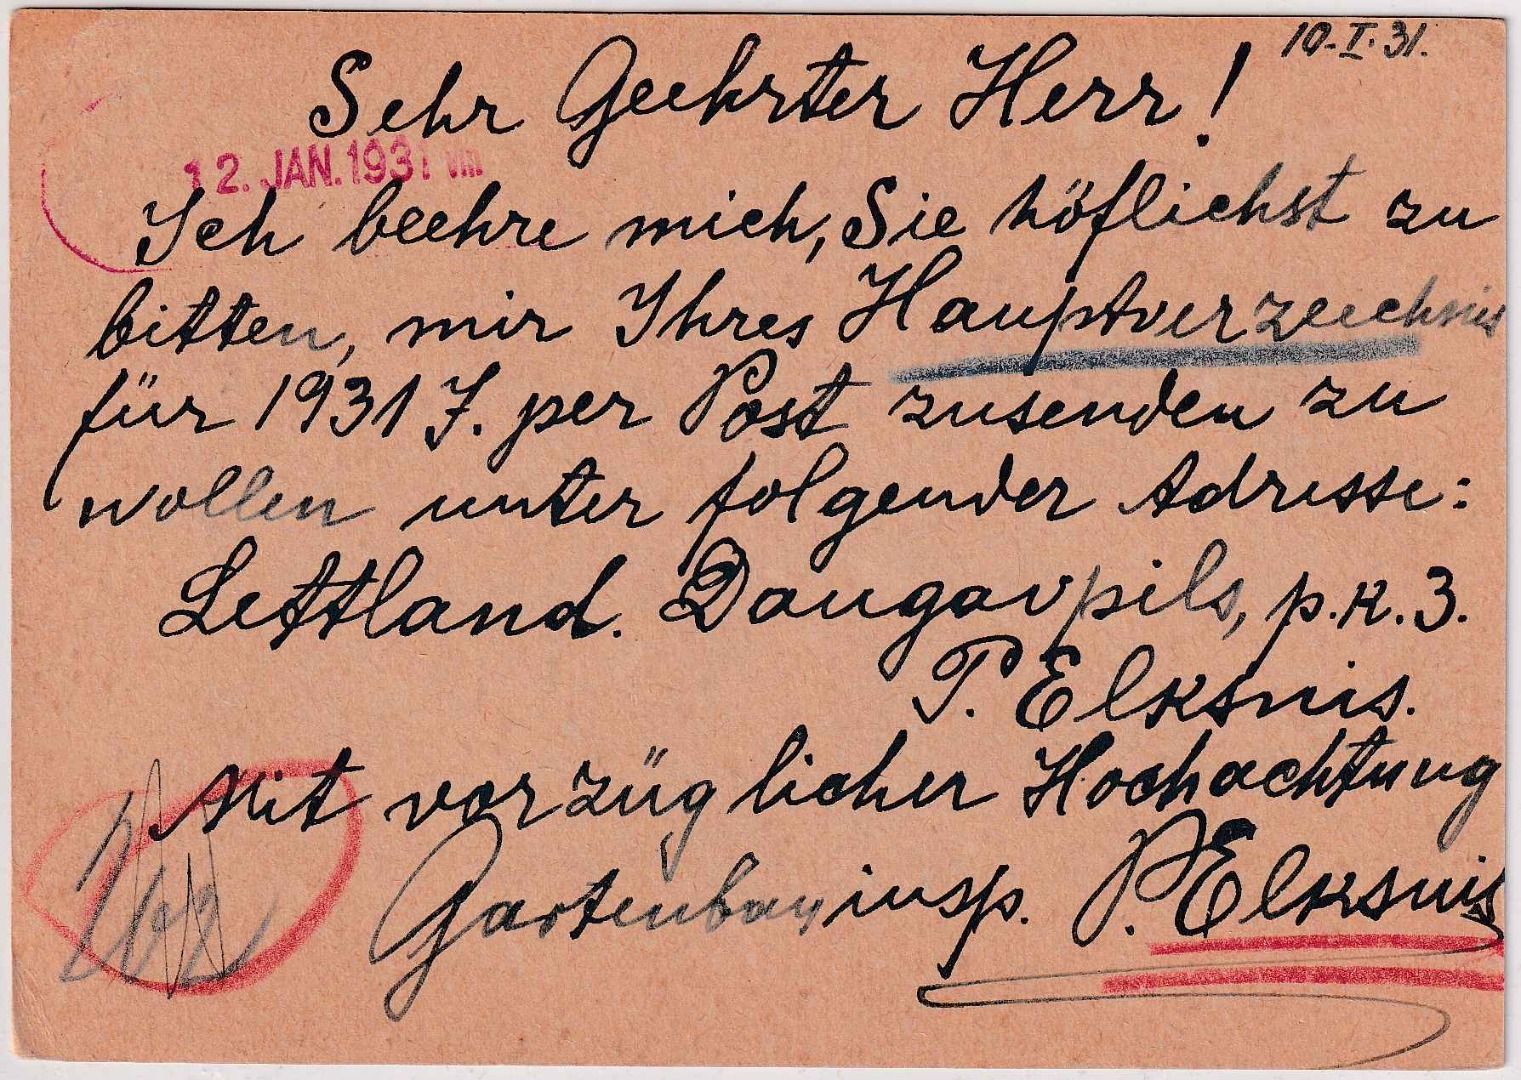 10.I.31.
Sehr Geehrter Herr!
12. JAN. 1931
Ich beehre mich, Sie höflichst zu
bitten, mir Ihres Hauptverzeichnis
für 1931 J. per Post zusenden zu
wollen unter folgender Adresse:
Lettland. Daugavpils, p.k. 3.
P. Elksnis.
Mit vorzüglicher Hochachtung
Gartenbauinsp. P. Elksnis